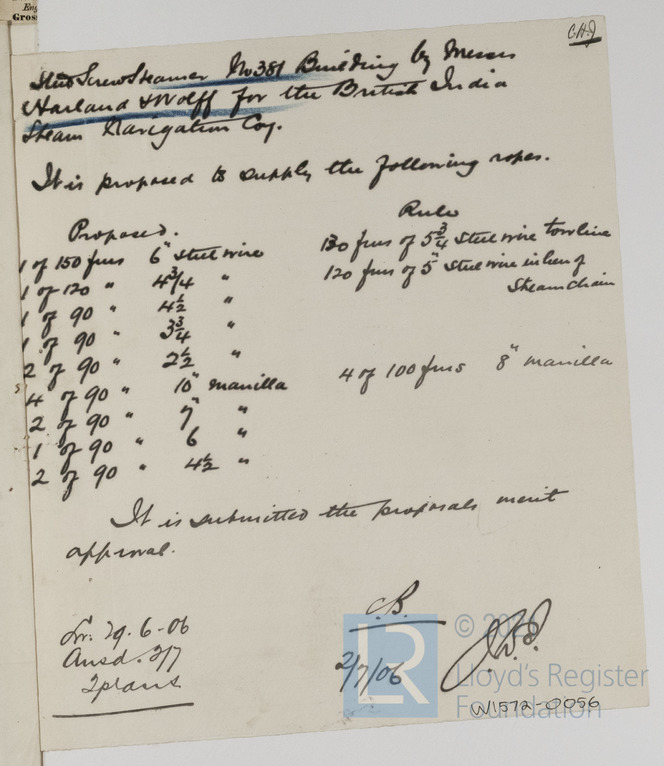 Eng
Gross
C.H.J
Stud Screw Steamer No 381 Building by Messrs
Harland & Wolff for the British India
Steam Navigation Coy.
It is proposed to supply the following ropes.
Proposed. Rule
1 of 150 fms 6" steel wire 130 fms of 5 3/4 steel wire towline
1 of 120 " 4 3/4 " 120 fms of 5" steel wire in lieu of
Steam chain
1 of 90 " 4 1/2 "
1 of 90 " 3 3/4 "
2 of 90 " 2 1/2 " 4 of 100 fms 8" manilla
4 of 90 " 10" manilla
2 of 90 " 7" "
1 of 90 " 6 "
2 of 90 " 4 1/2 "
It is submitted the proposals merit
approval.
C.B.
Lr. 29.6-06
Ansd. 2/7
2 plans
2/7/06
© 20
LR
Lloyd's Register
Foundation
W1572-0056